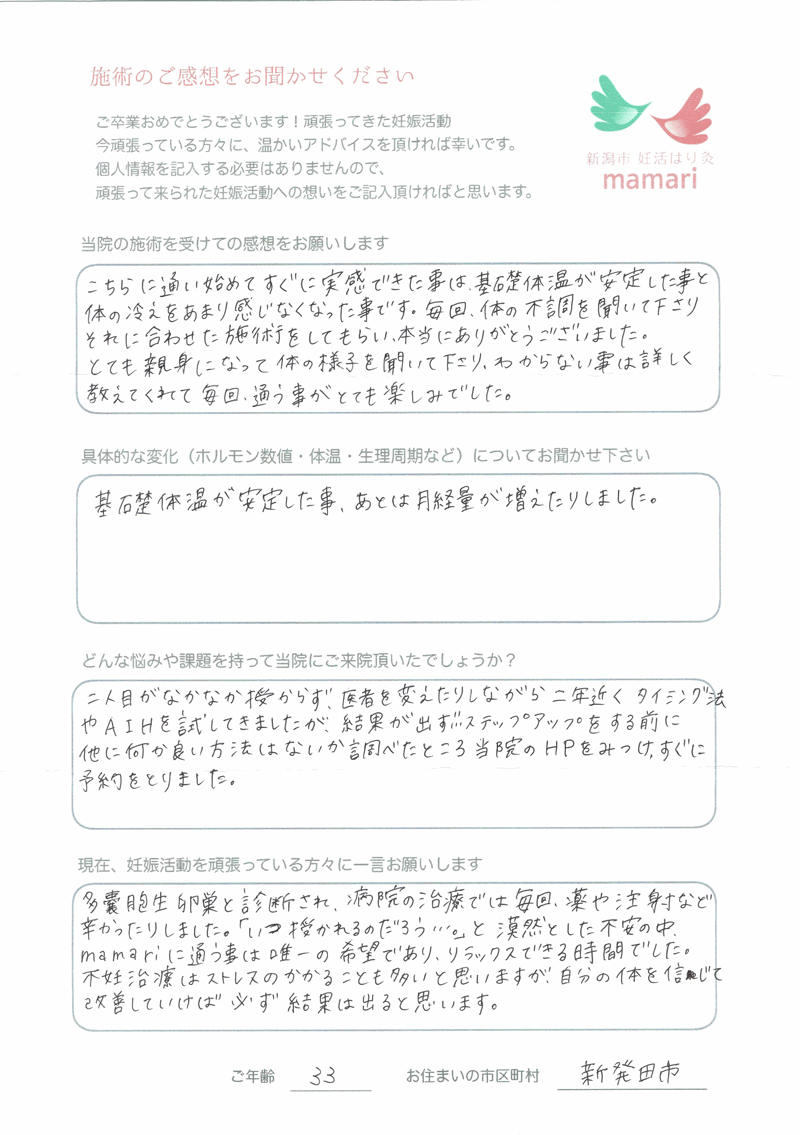 施術のご感想をお聞かせください
ご卒業おめでとうございます！頑張ってきた妊娠活動
今頑張っている方々に、温かいアドバイスを頂ければ幸いです。
個人情報を記入する必要はありませんので、
頑張って来られた妊娠活動への想いをご記入頂ければと思います。
新潟市 妊活はり灸
mamari
当院の施術を受けての感想をお願いします
こちらに通い始めてすぐに実感できた事は、基礎体温が安定した事と
体の冷えをあまり感じなくなった事です。毎回、体の不調を聞いて下さり
それに合わせた施術をしてもらい、本当にありがとうございました。
とても親身になって体の様子を聞いて下さり、わからない事は詳しく
教えてくれて毎回、通う事がとても楽しみでした。
具体的な変化（ホルモン数値・体温・生理周期など）についてお聞かせ下さい
基礎体温が安定した事、あとは月経量が増えたりしました。
どんな悩みや課題を持って当院にご来院頂いたでしょうか？
二人目がなかなか授からず、医者を変えたりしながら二年近くタイミング法
やAIHを試してきましたが、結果が出ずステップアップをする前に
他に何か良い方法はないか調べたところ当院のHPをみつけ、すぐに
予約をとりました。
現在、妊娠活動を頑張っている方々に一言お願いします
多嚢胞性卵巣と診断され、病院の治療では毎回、薬や注射など
辛かったりしました。「いつ授かれるのだろう…。」と漠然とした不安の中、
mamariに通う事は唯一の希望であり、リラックスできる時間でした。
不妊治療はストレスのかかることも多いと思いますが、自分の体を信じて
改善していけば必ず結果は出ると思います。
ご年齢 33 お住まいの市区町村 新発田市